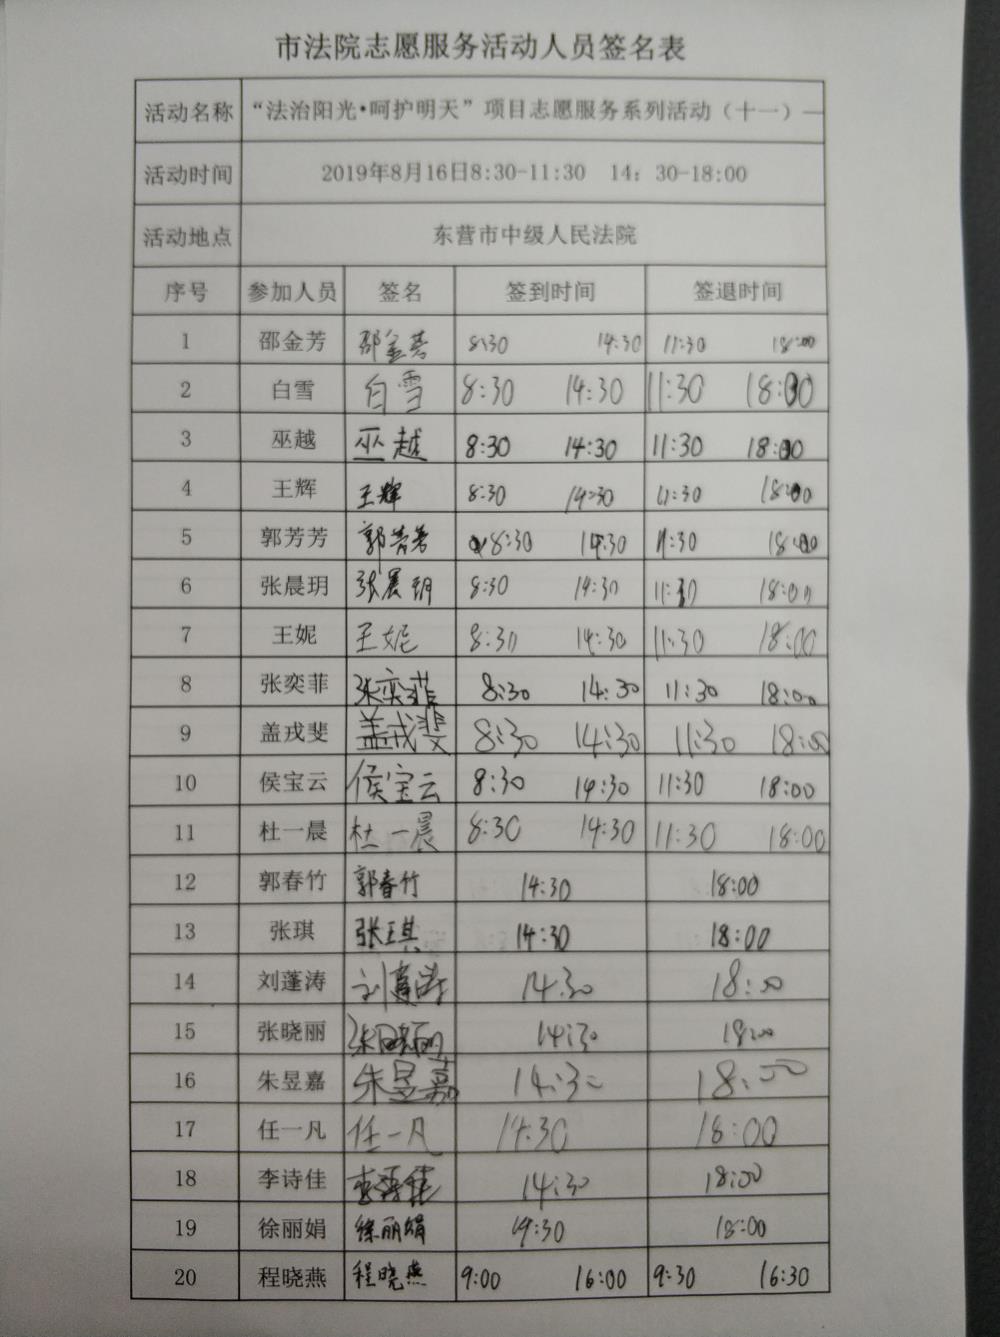 市法院志愿服务活动人员签名表
活动名称 “法治阳光•呵护明天”项目志愿服务系列活动（十一）—
活动时间 2019年8月16日8:30-11:30 14：30-18:00
活动地点 东营市中级人民法院
序号 参加人员 签名 签到时间 签退时间
1 邵金芳 邵金芳 8:30 14:30 11:30 18:00
2 白雪 白雪 8:30 14:30 11:30 18:00
3 巫越 巫越 8:30 14:30 11:30 18:00
4 王辉 王辉 8:30 14:30 11:30 18:00
5 郭芳芳 郭芳芳 8:30 14:30 11:30 18:00
6 张晨玥 张晨玥 8:30 14:30 11:30 18:00
7 王妮 王妮 8:30 14:30 11:30 18:00
8 张奕菲 张奕菲 8:30 14:30 11:30 18:00
9 盖戎斐 盖戎斐 8:30 14:30 11:30 18:00
10 侯宝云 侯宝云 8:30 14:30 11:30 18:00
11 杜一晨 杜一晨 8:30 14:30 11:30 18:00
12 郭春竹 郭春竹 14:30 18:00
13 张琪 张琪 14:30 18:00
14 刘蓬涛 刘蓬涛 14:30 18:00
15 张晓丽 张晓丽 14:30 18:00
16 朱昱嘉 朱昱嘉 14:30 18:00
17 任一凡 任一凡 14:30 18:00
18 李诗佳 李诗佳 14:30 18:00
19 徐丽娟 徐丽娟 14:30 18:00
20 程晓燕 程晓燕 9:00 16:00 9:30 16:30